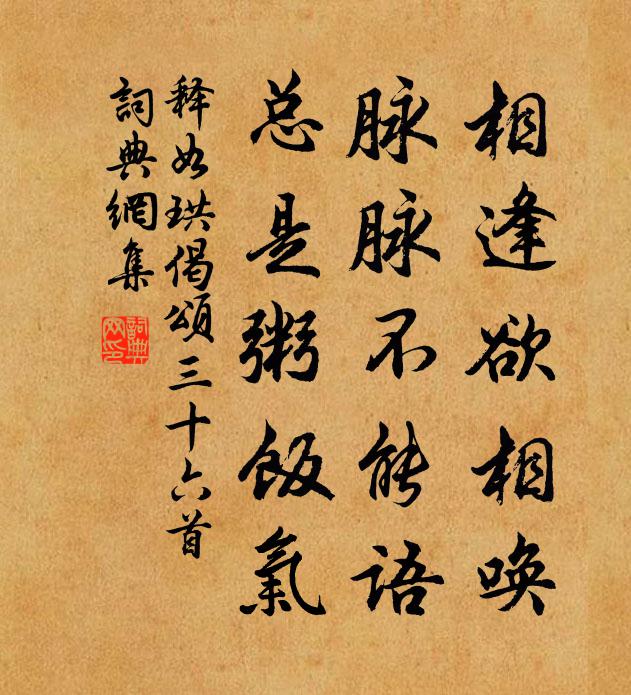 相逢欲相唤
脉脉不能语
总是粥飯氣
释如珙偈頌三十六首
詞典網集
詞典网印